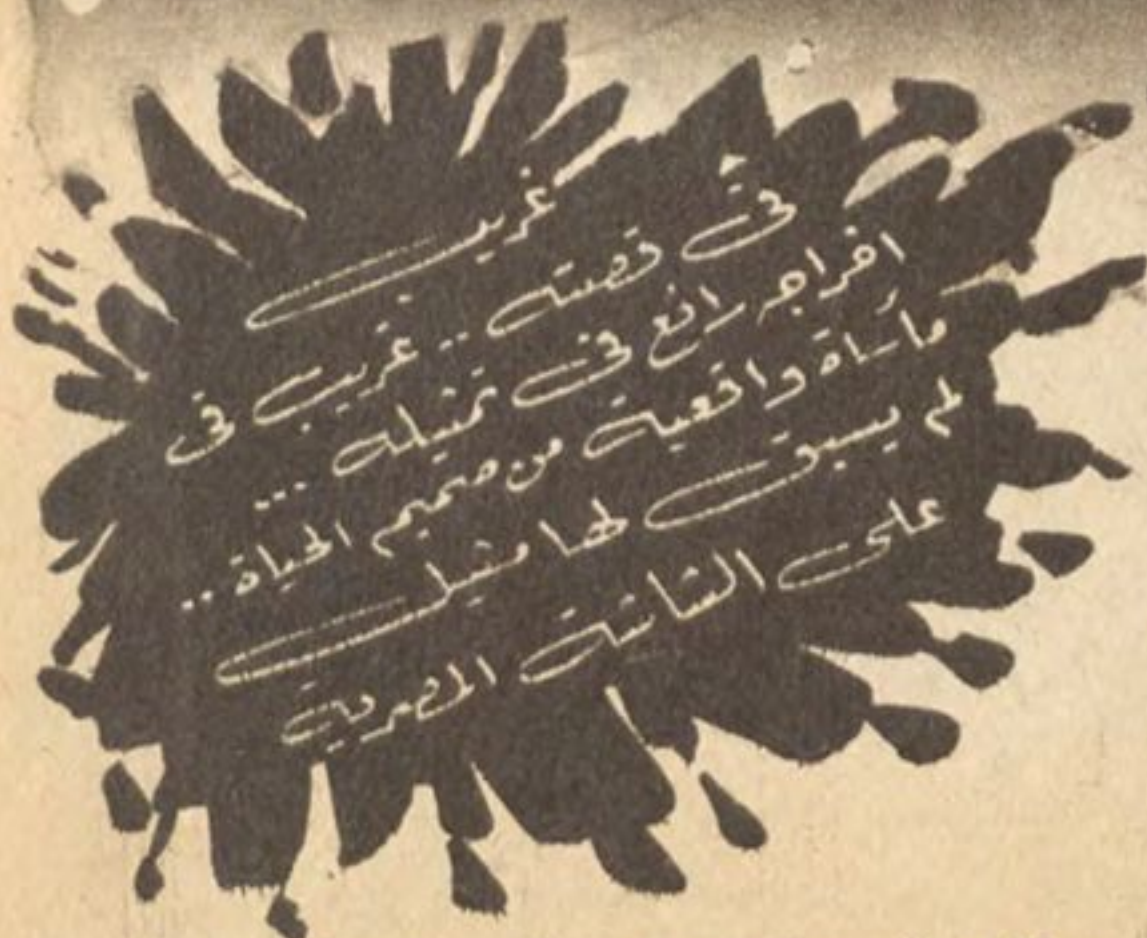 غريب
فى قصته .. غريب فى
اخراجه رائع فى تمثيله ...
مأساة واقعية من صميم الحياة ..
لم يسبق لها مثيل
على الشاشة المصرية